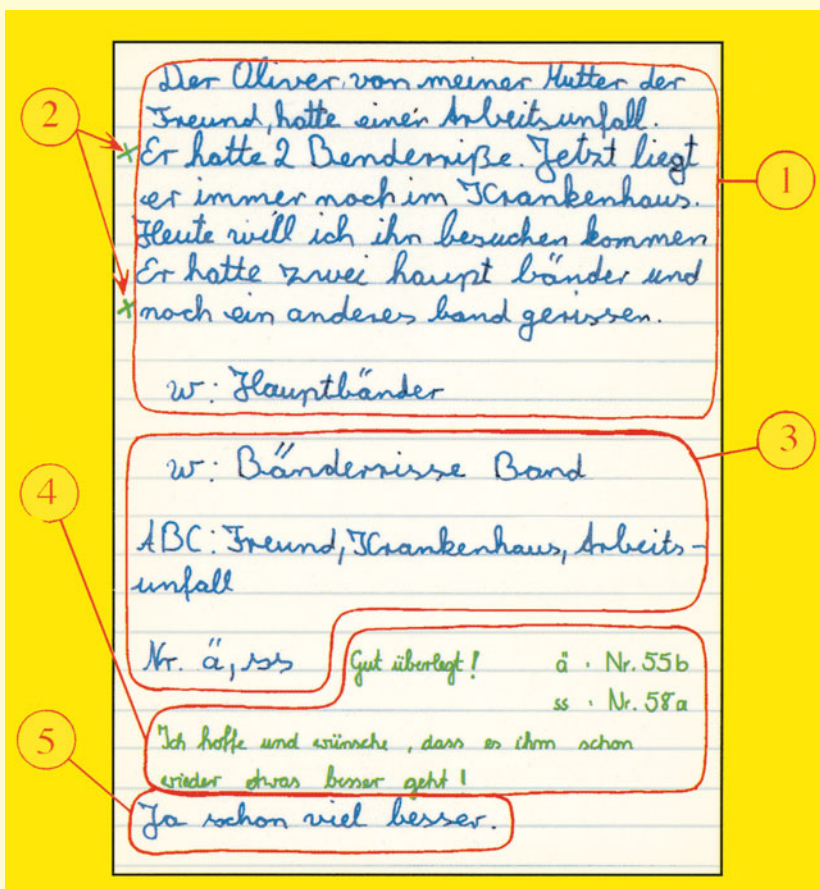 Der Oliver, von meiner Mutter der
2
Freund, hatte einen Arbeitsunfall.
Er hatte 2 Benderriße. Jetzt liegt
1
er immer noch im Krankenhaus.
Heute will ich ihn besuchen kommen
Er hatte zwei haupt bänder und
noch ein anderes band gerissen.
w: Hauptbänder
3
w: Bänderrisse Band
4
ABC: Freund, Krankenhaus, Arbeits-
unfall
Nr. ä, ss
Gut überlegt! ä : Nr. 55b
ss : Nr. 58a
Ich hoffe und wünsche, dass es ihm schon
5
wieder etwas besser geht!
Ja schon viel besser.